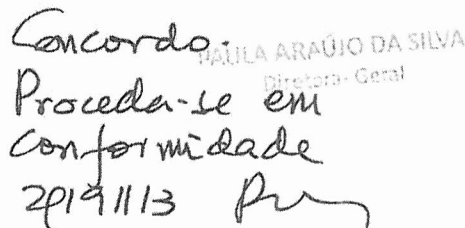 Concordo.
PAULA ARAÚJO DA SILVA
Diretora-Geral
Proceda-se em
conformidade
20191113